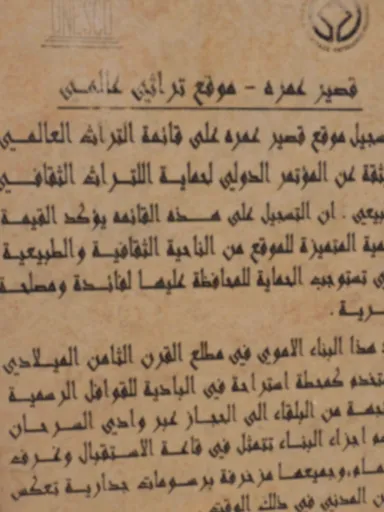 UNESCO
قصير عمره - موقع تراثي عالمي
سجيل موقع قصير عمره على قائمة التراث العالمي
ثقة عن المؤتمر الدولي لحماية اللتراث الثقافي
بيعي . ان التسجيل على هذه القائمه يؤكد القيمة
مية المتميزة للموقع من الناحية الثقافية والطبيعية
ي تستوجب الحماية للمحافظة عليها لفائدة ومصلحة
رية .
هذا البناء الاموي في مطلع القرن الثامن الميلادي
تخدم كمحطة استراحة في البادية للقوافل الرسمية
جهة من البلقاء الى الحجاز عبر وادي السرحان
م اجزاء البناء تتمثل في قاعة الاستقبال وغرف
مام،وجميعها مزخرفة برسومات جدارية تعكس
ن المدني في ذلك الوقت